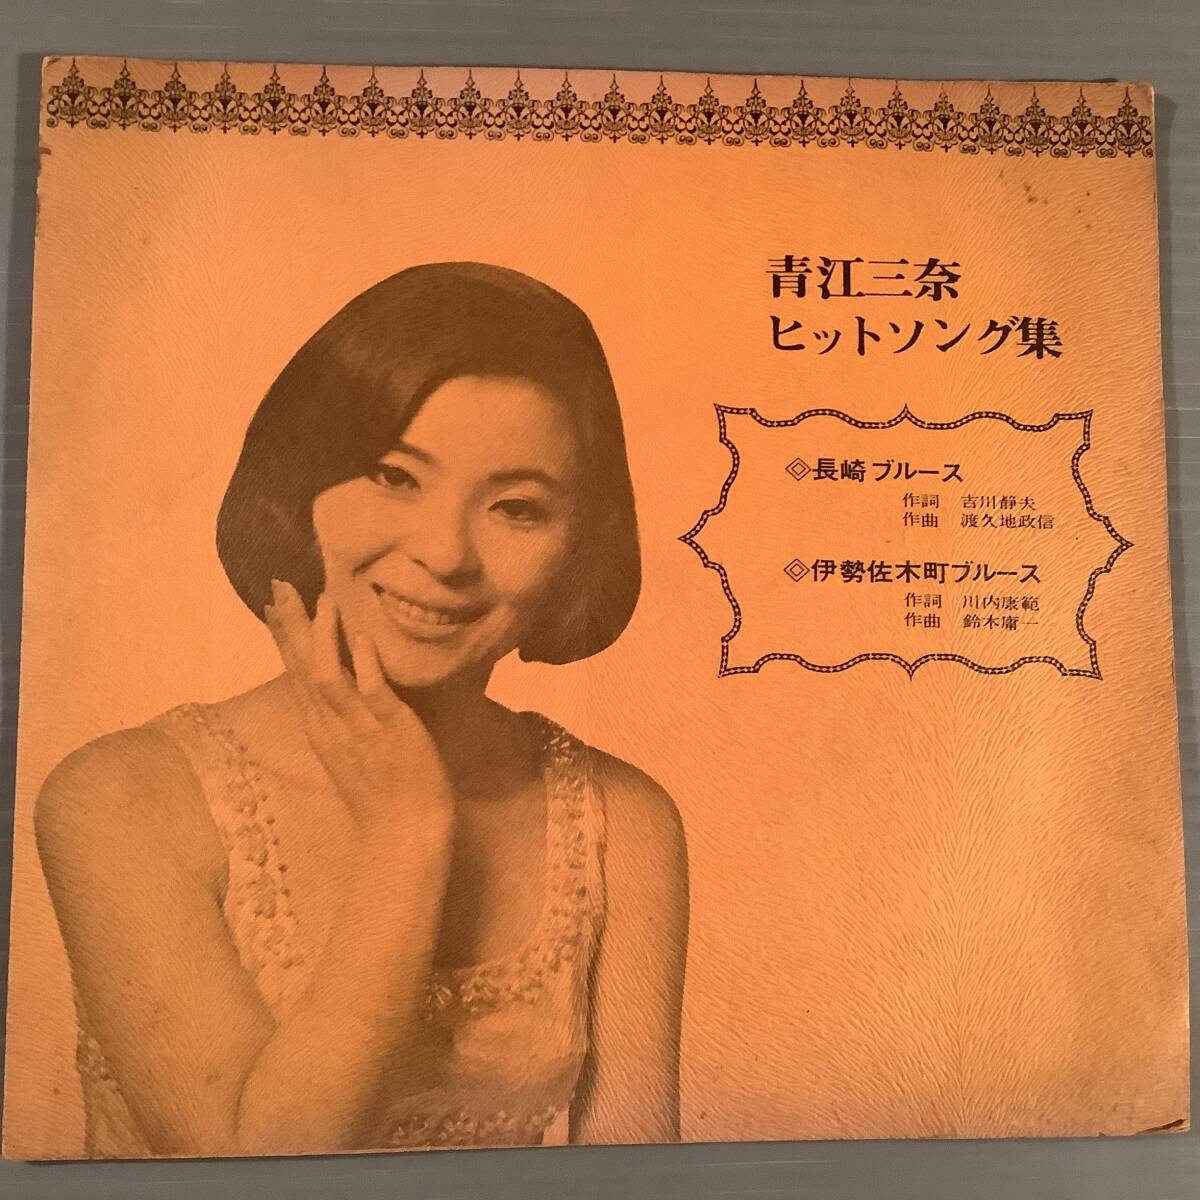 青江三奈
ヒットソング集
◇長崎ブルース
作詞 吉川静夫
作曲 渡久地政信
◇伊勢佐木町ブルース
作詞 川内康範
作曲 鈴木庸一